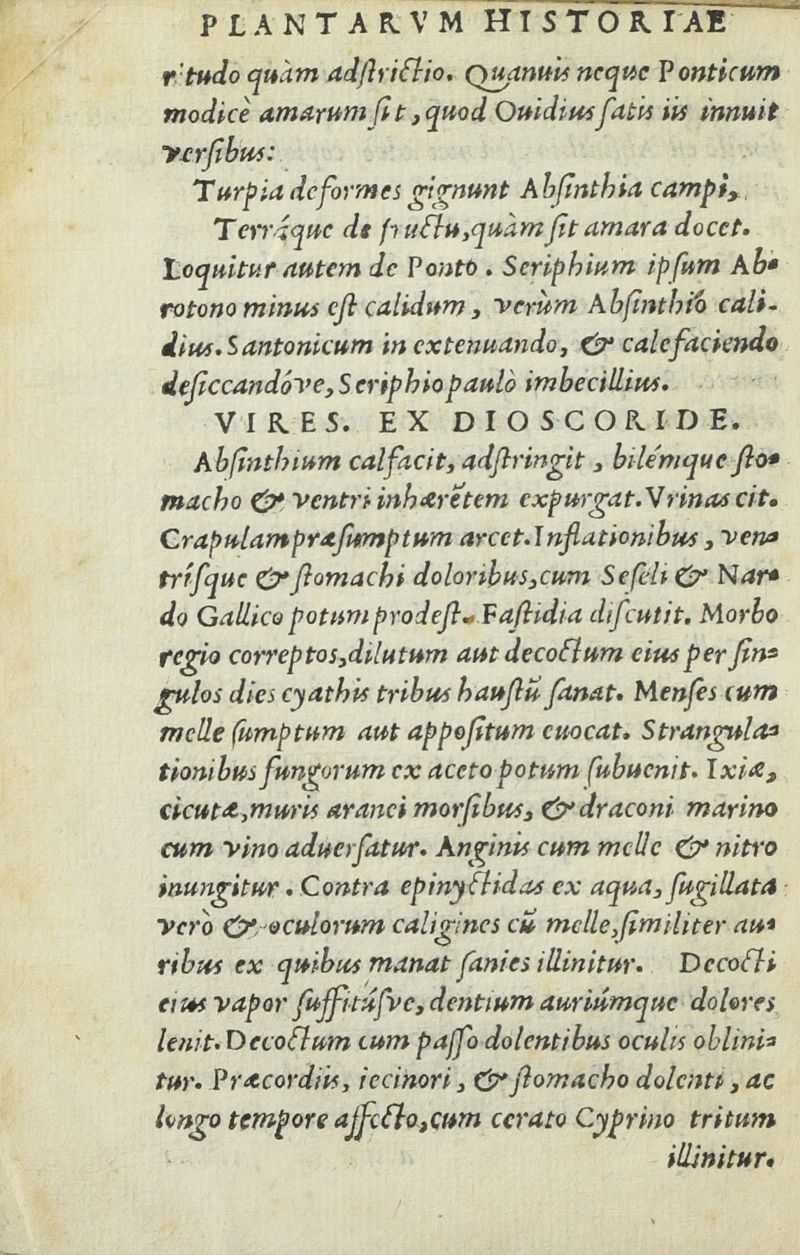 PLANTARVM HISTORIAE
ritudo quàm adſtrictio. Quanuis neque Ponticum
modicè amarum ſit, quod Ouidius ſatis iis innuit
verſibus:
Turpia deformes gignunt Abſinthia campi,
Terráque de fructu, quàm ſit amara docet.
Loquitur autem de Ponto. Seriphium ipſum Ab-
rotono minus eſt calidum, verùm Abſinthio cali-
dius. Santonicum in extenuando, & calefaciendo
deſiccandóve, Seriphio paulò imbecillius.
VIRES. EX DIOSCORIDE.
Abſinthium calfacit, adſtringit, bilémque ſto-
macho & ventri inhærẽtem expurgat. Vrinas cit.
Crapulam præſumptum arcet. Inflationibus, ven-
tríſque & ſtomachi doloribus, cum Seſeli & Nar-
do Gallico potum prodeſt. Faſtidia diſcutit. Morbo
regio correptos, dilutum aut decoctum eius per ſin-
gulos dies cyathis tribus hauſtũ ſanat. Menſes cum
melle ſumptum aut appoſitum euocat. Strangula-
tionibus fungorum ex aceto potum ſubuenit. Ixiæ,
cicutæ, muris aranei morſibus, & draconi marino
cum vino aduerſatur. Anginis cum melle & nitro
inungitur. Contra epinyctidas ex aqua, ſugillata
verò & oculorum caligines cũ melle, ſimiliter au-
ribus ex quibus manat ſanies illinitur. Decocti
eius vapor ſuffitúſve, dentium auriúmque dolores
lenit. Decoctum cum paſſo dolentibus oculis oblini-
tur. Præcordiis, iecinori, & ſtomacho dolenti, ac
longo tempore affecto, cum cerato Cyprino tritum
illinitur.